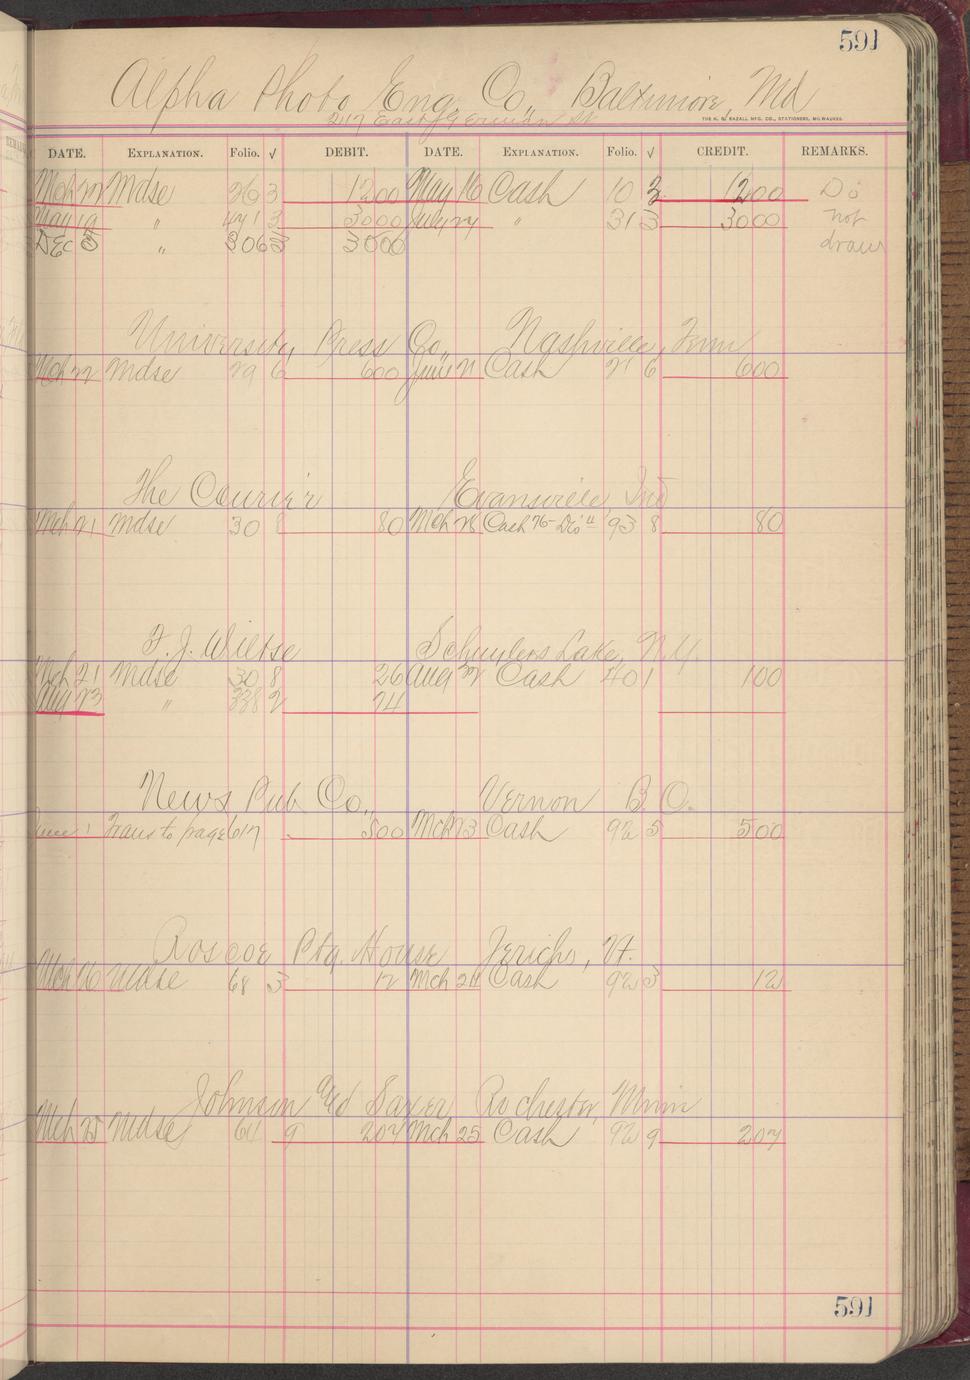 591
Alpha Photo Eng. Co., Baltimore, Md
217 East German St
THE H. N. BAZALL MFG. CO., STATIONERS, MILWAUKEE.
DATE. EXPLANATION. Folio. √ DEBIT. DATE. EXPLANATION. Folio. √ CREDIT. REMARKS.
Mch 22 Mdse 263 1200 May 16 Cash 10 3 1200 Do
May 19 " 3 3000 July 27 " 31 3 3000 not
Dec " 306 3 3000 draw
University Press Co., Nashville, Tenn
Mch 22 Mdse 29 6 600 June 21 Cash 21 6 600
The Courier Evansville, Ind
Mch 21 Mdse 30 8 80 Mch 28 Cash 76 Dis 4 93 8 80
F. J. Wiltse Schuylers Lake, N.Y.
Mch 21 Mdse 30 8 26 Aug 22 Cash 40 1 100
Aug 23 " 338 2 74
News Pub Co., Vernon B. C.
June 1 Trans to page 617 500 Mch 23 Cash 92 5 500
Roscoe Ptg. House Jericho, Vt.
Mch 26 Mdse 68 3 12 Mch 24 Cash 92 3 12
Johnson and Saxer Rochester, Minn
Mch 25 Mdse 64 9 207 Mch 25 Cash 92 9 207
591